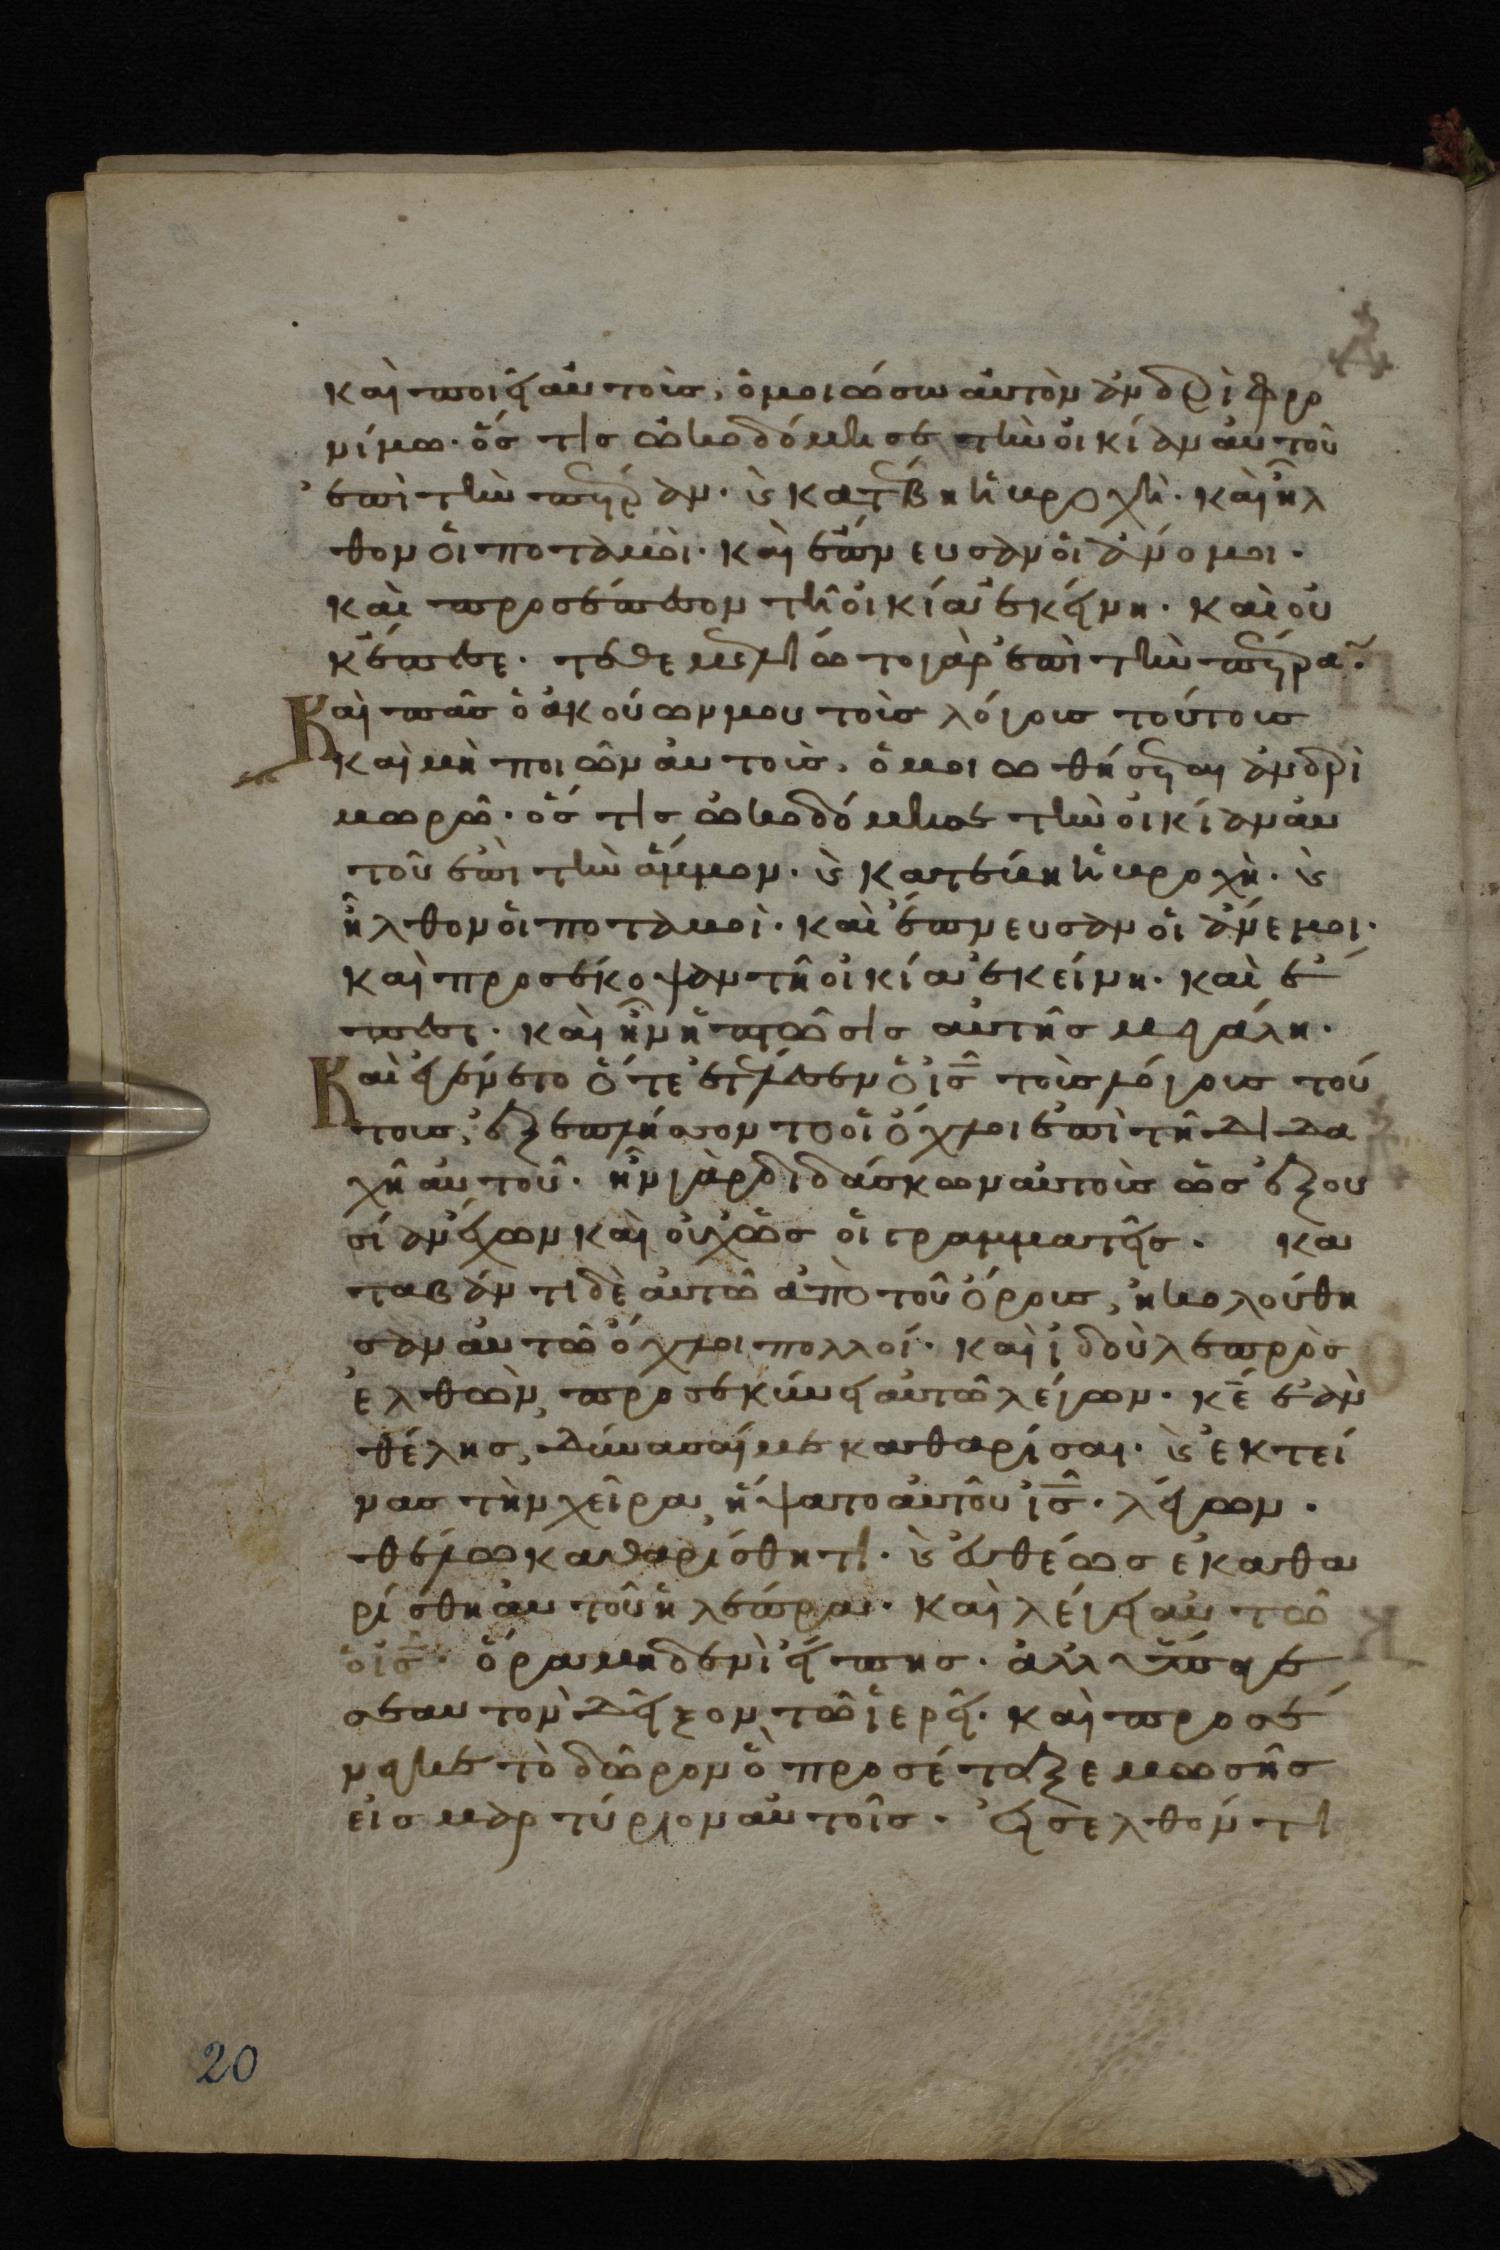 καὶ ποιεῖ αὐτοὺς, ὁμοιώσω αὐτὸν ἀνδρὶ φρο
νίμω· ὅστις ὠκοδόμησε τὴν οἰκίαν αὐτοῦ
ἐπὶ τὴν πέτραν· κ(αὶ) κατέβη ἡ βροχὴ· καὶ ἦλ
θον οἱ ποταμοὶ· καὶ ἔπνευσαν οἱ ἄνεμοι·
καὶ προσέπεσον τῆ οἰκία ἐκείνη· καὶ οὐ
κ ἔπεσε· τεθεμελίωτο γὰρ ἐπὶ τὴν πέτρα(ν)·
Καὶ πᾶς ὁ ἀκούων μου τοὺς λόγους τούτους
καὶ μὴ ποιῶν αὐτοὺς, ὁμοιωθήσεται ἀνδρὶ
μωρῶ· ὅστις ὠκοδόμησε τὴν οἰκίαν αὐ
τοῦ ἐπὶ τὴν ἄμμον· κ(αὶ) κατέβη ἡ βροχὴ· κ(αὶ)
ἦλθον οἱ ποταμοὶ· καὶ ἔπνευσαν οἱ ἄνεμοι·
καὶ προσέκοψαν τῆ οἰκία ἐκείνη· καὶ ἔ
πεσε· καὶ ἦν ἡ πτῶσις αὐτῆς μεγάλη·
Καὶ ἐγένετο ὅτε ἐτέλεσεν ὁ ἰ̅ς̅ τοὺς λόγους τού
τους, ἐξεπλήσσοντο οἱ ὄχλοι ἐπὶ τῆ διδα
χῆ αὐτοῦ· ἦν γὰρ διδάσκων αὐτοὺς ὡς ἐξου
σίαν ἔχων καὶ οὐχ ὡς οἱ γραμματεῖς· Κα
ταβάντι δὲ αὐτῶ ἀπὸ τοῦ ὄρους, ἠκολούθη
σαν αὐτῶ ὄχλοι πολλοί· καὶ ἰδοὺ λεπρὸς
ἐλθὼν, προσεκύνει αὐτῶ λέγων· κ̅ε̅ ἐὰν
θέλης, δύνασαί με καθαρίσαι· κ(αὶ) ἐκτεί
νας τὴν χεῖρα, ἥψατο αὐτοῦ ὁ ἰ̅ς̅· λέγων·
θέλω καθαρίσθητι· κ(αὶ) εὐθέως ἐκαθα
ρίσθη αὐτοῦ ἡ λέπρα· καὶ λέγει αὐτῶ
ὁ ἰ̅ς̅· ὅρα μηδενὶ εἴπης· ἀλλ' ὕπαγε
σεαυτὸν δεῖξον τῶ ἱερεῖ· καὶ προσέ
νεγκε τὸ δῶρον ὃ προσέταξε μωσῆς
εἰς μαρτύριον αὐτοῖς· Εἰσελθόντι
20